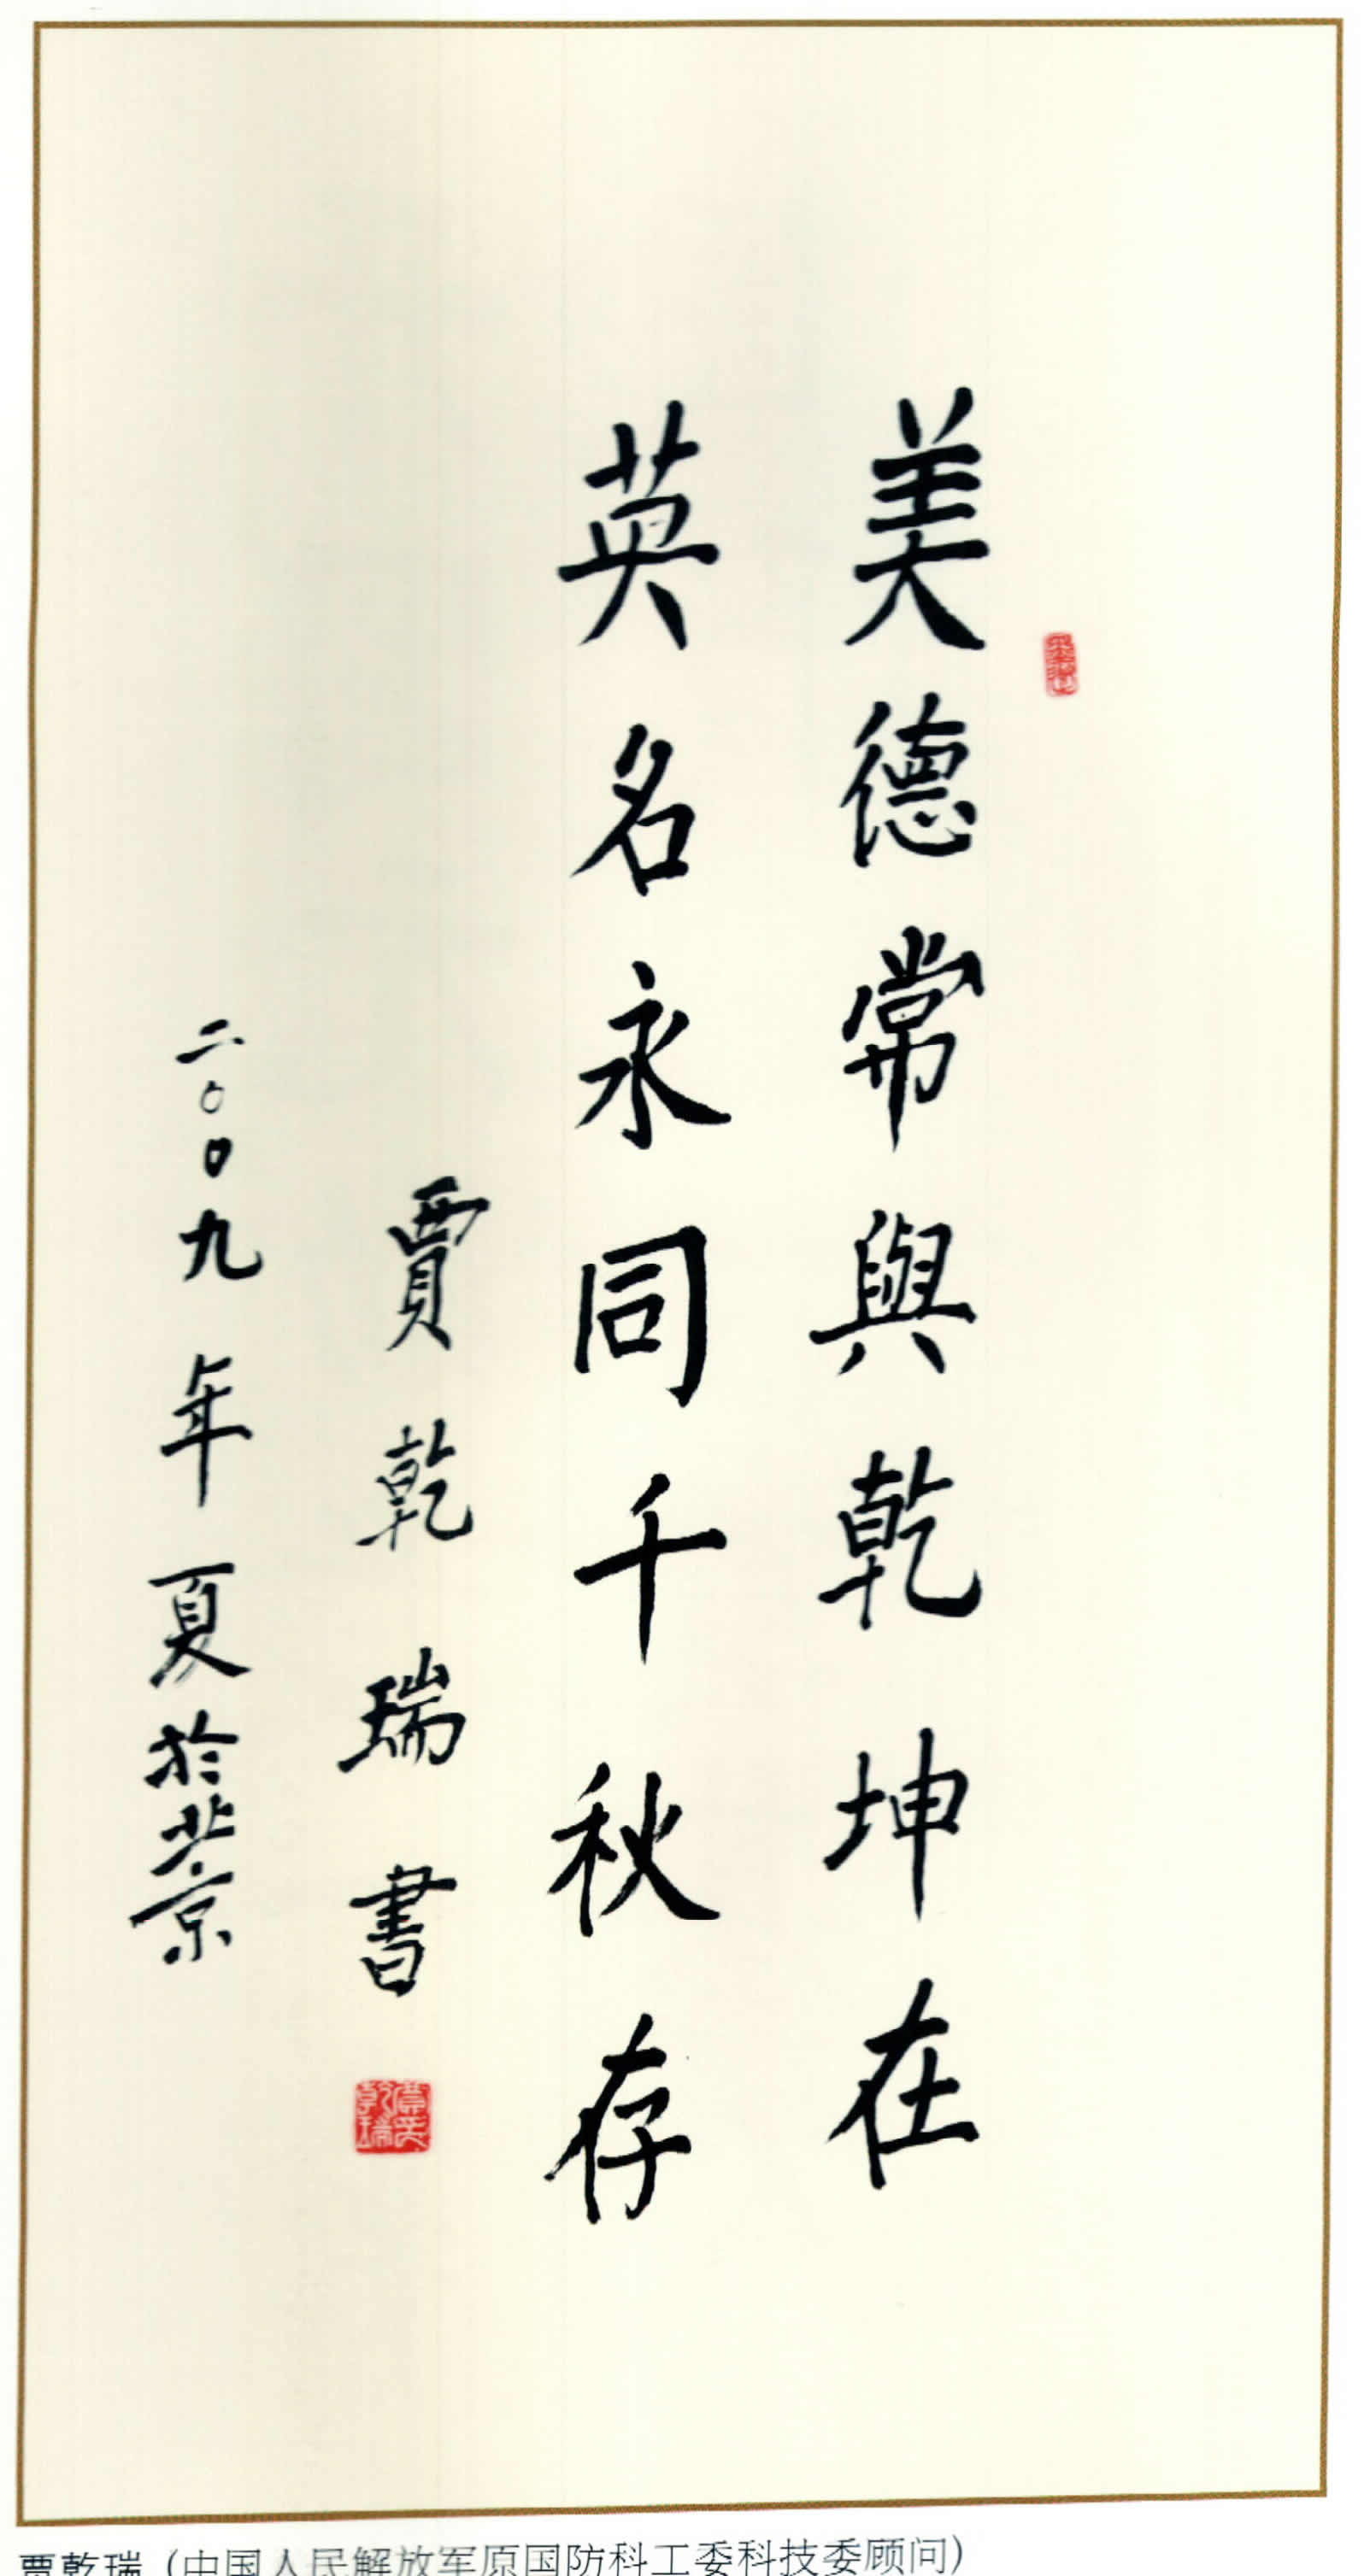 美德常與乾坤在
英名永同千秋存
賈乾瑞書
二〇〇九年夏於北京
贾乾瑞（中国人民解放军原国防科工委科技委顾问）